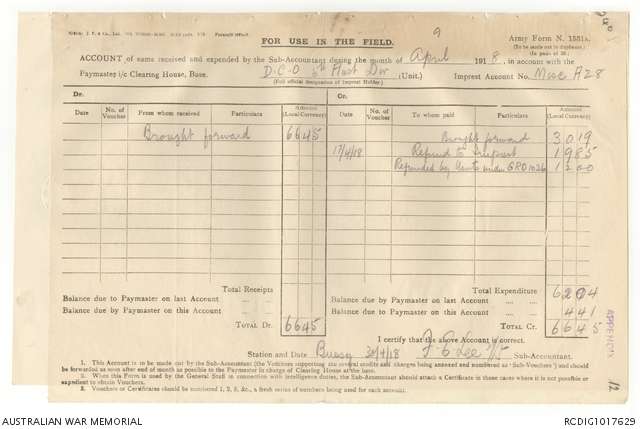 9
Army Form N. 1531A.
(To be made out in duplicate.)
FOR USE IN THE FIELD.
ACCOUNT of sums received and expended by the Sub-Accountant during the month of April 1918, in account with the
Paymaster i/c Clearing House, Base. D.C.O 5th Aust Div (Unit.) Imprest Account No. Misc A28
(Full official designation of Imprest Holder.)
Dr. Cr.
Date No. of Voucher From whom received Particulars Amount (Local Currency) Date No. of Voucher To whom paid Particulars Amount (Local Currency)
Brought forward 6645 Brought forward 3019
17/4/18 Refund to Imprest 1985
Refunded by Units under GRO 1026 1200
Total Receipts Total Expenditure 6204
Balance due to Paymaster on last Account Balance due by Paymaster on last Account
Balance due by Paymaster on this Account Balance due to Paymaster on this Account 441
Total Dr. 6645 Total Cr. 6645
I certify that the above Account is correct.
Station and Date Bussy 30/4/18 Sub-Accountant.
APPENDIX
12
1. This Account is to be made out by the Sub-Accountant (the Vouchers supporting the several credits and charges being annexed and numbered as 'Sub-Vouchers') and should
be forwarded as soon after end of month as possible to the Paymaster in charge of Clearing House at the base.
2. When this Form is used by the General Staff in connection with intelligence duties, the Sub-Accountant should attach a Certificate in those cases where it is not possible or
expedient to obtain Vouchers.
3. Vouchers or Certificates should be numbered 1, 2, 3, &c., a fresh series of numbers being used for each account.
AUSTRALIAN WAR MEMORIAL
RCDIG1017629